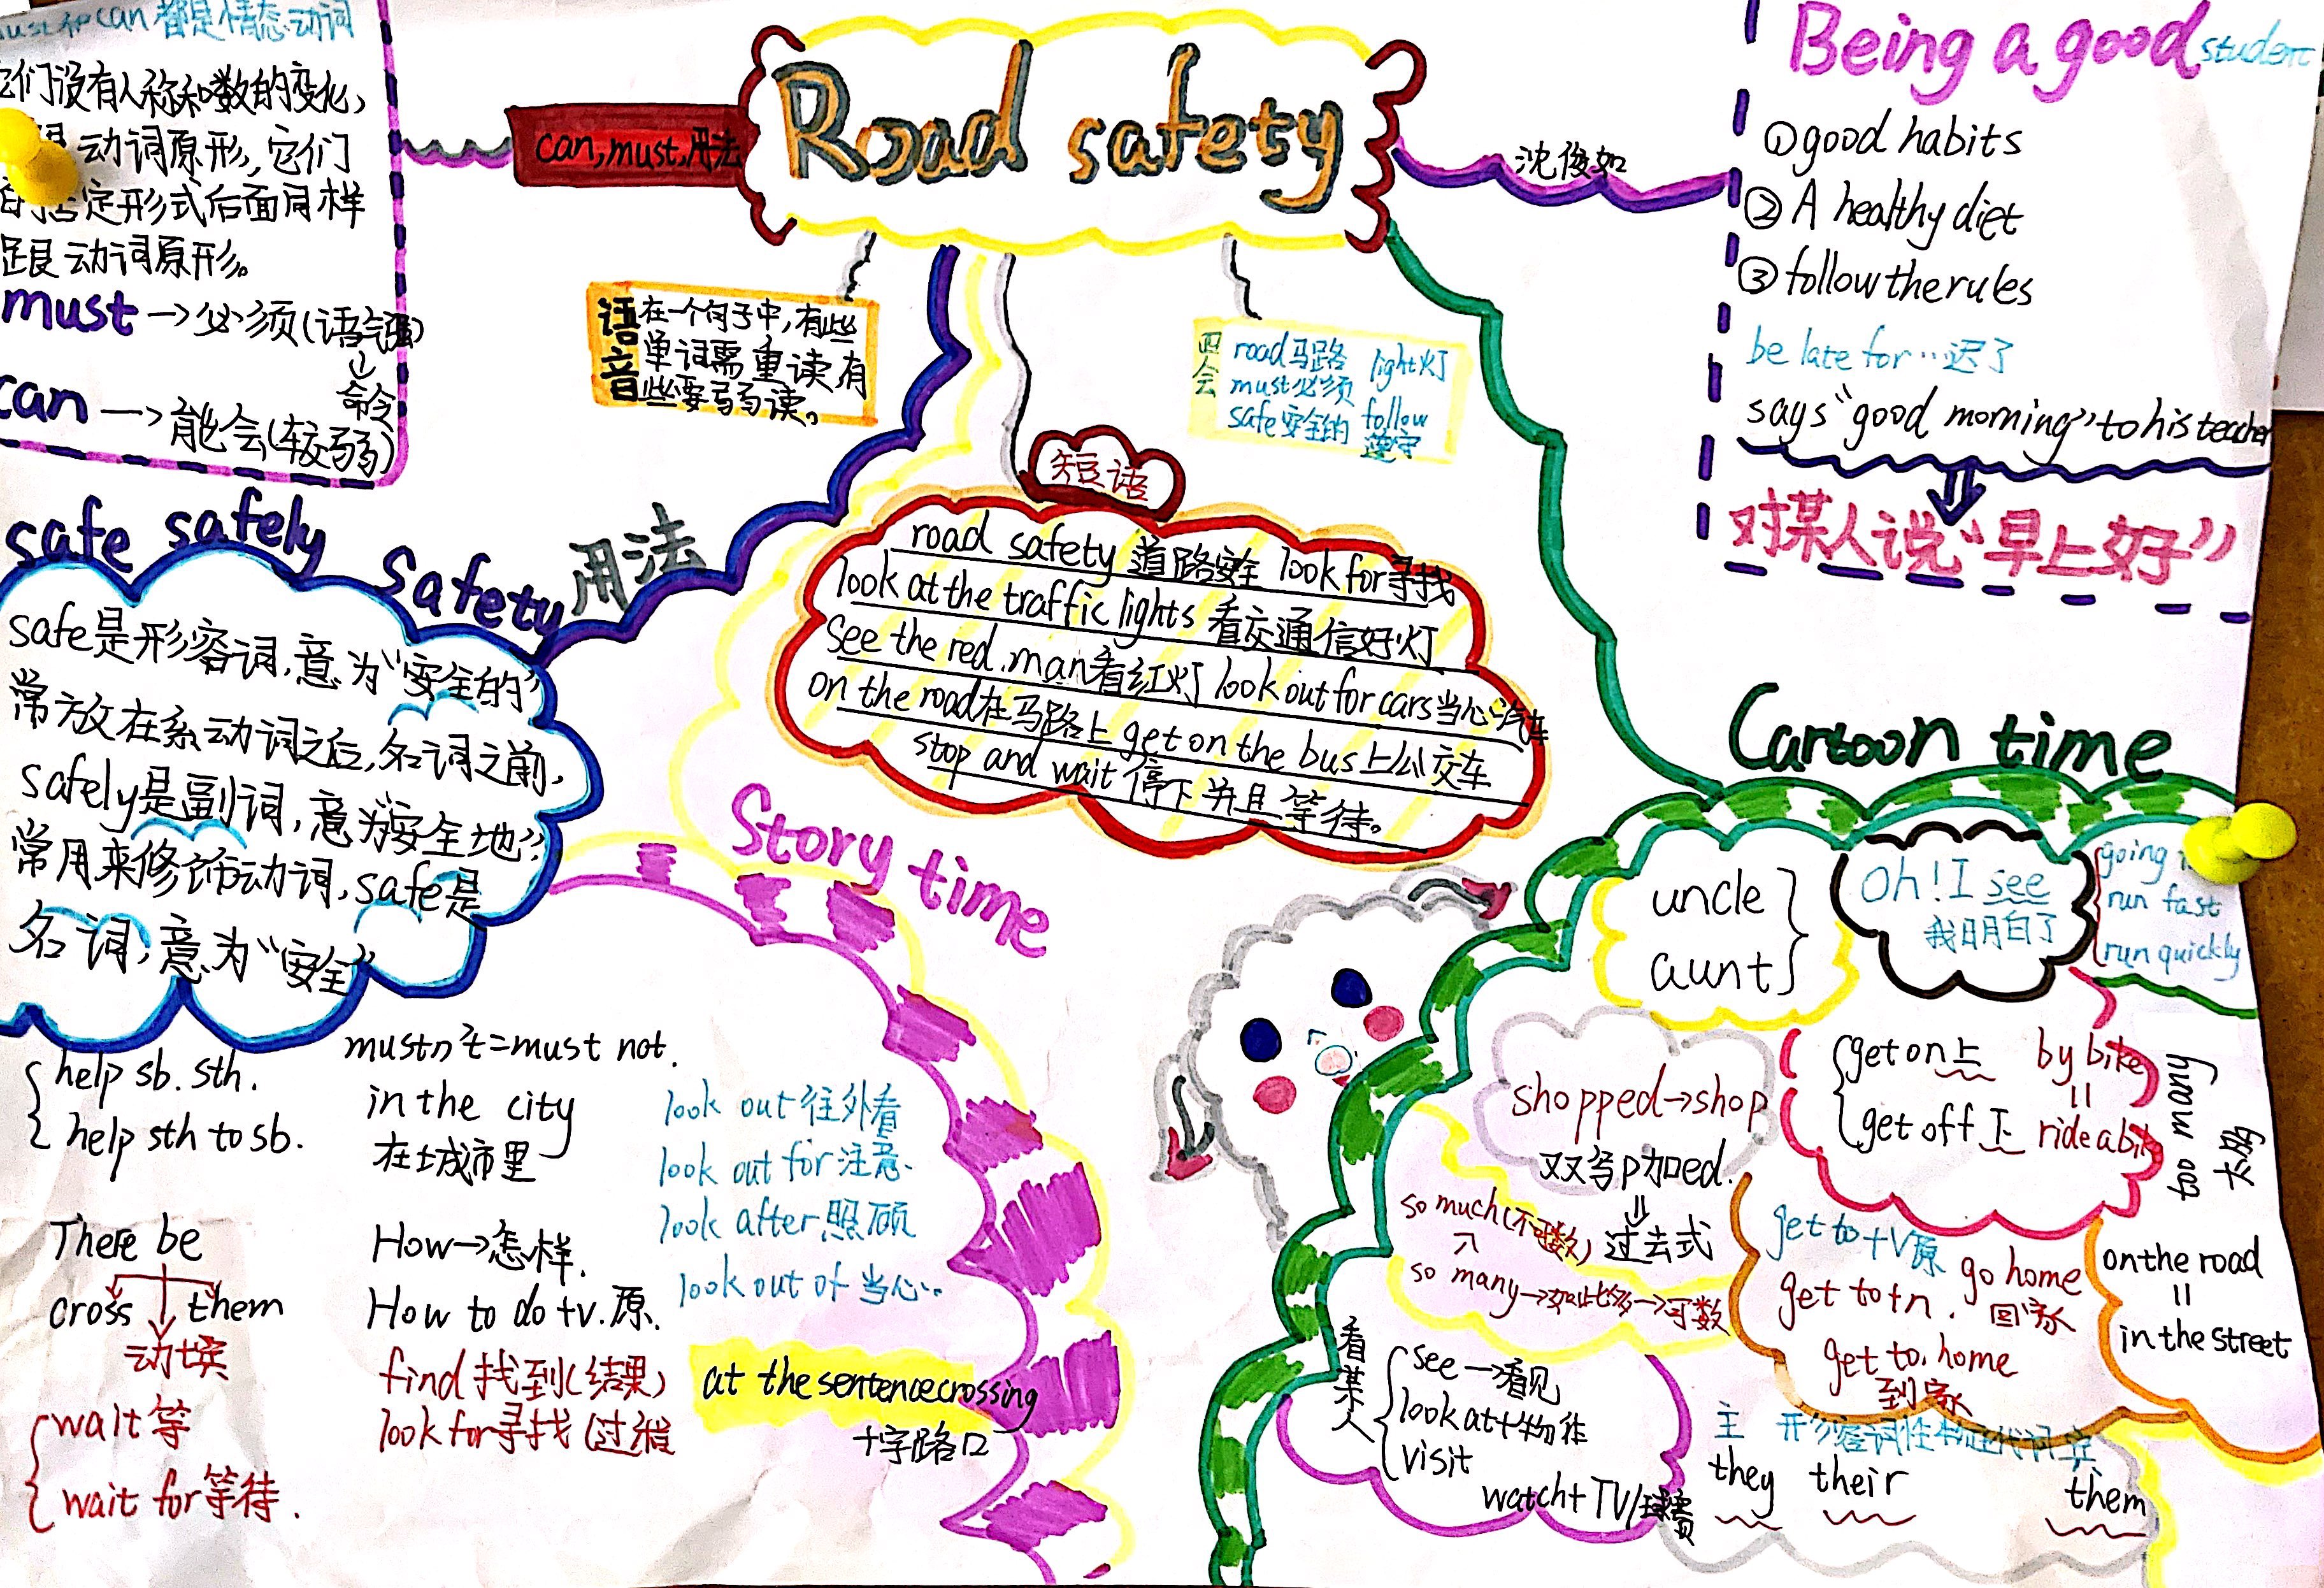 Road safety
can, must, 用法
must和can都是情态动词
它们没有人称和数的变化,
跟动词原形,它们
的否定形式后面同样
跟动词原形。
must→必须(语气强)
↓
命令
can→能会(较弱)
语音
在一个句子中,有些
单词需重读,有
些要弱读。
四会
road马路 light灯
must必须
safe安全的 follow
遵守
沈俊如
Being a good student
①good habits
②A healthy diet
③follow the rules
be late for…迟了
says“good morning”to his teacher
对某人说“早上好”
短语
road safety 道路安全 look for寻找
look at the traffic lights 看交通信好灯
See the red.man看红灯 look out for cars当心汽车
on the road在马路上 get on the bus上公交车
stop and wait 停下并且等待。
safe safely Safety 用法
safe是形容词,意为“安全的”
常放在系动词之后,名词之前,
safely是副词,意为“安全地”
常用来修饰动词,safe是
名词,意为“安全”
help sb. sth.
help sth to sb.
There be
cross them
动填
wait 等
wait for等待.
mustn't=must not.
in the city
在城市里
How→怎样.
How to do +v.原.
find 找到(结果)
look for寻找(过程)
Story time
look out 往外看
look out for 注意.
look after 照顾
look out of 当心.
at the sentencecrossing
十字路口
Cartoon time
uncle
aunt
Oh! I see
我明白了
going
run fast
run quickly
shopped→shop
双写p加ed.
⇓
过去式
get on上
get off下
by bike
=
ride a bik
too many
太多
so much(不可数)
so many→如此多→可数
get to +V原
get to +n. go home
回家
get to. home
到家
on the road
=
in the street
看某人
see→看见
look at+物体
visit
watch+TV/球赛
主 形容词性物主代词 宾
they their them